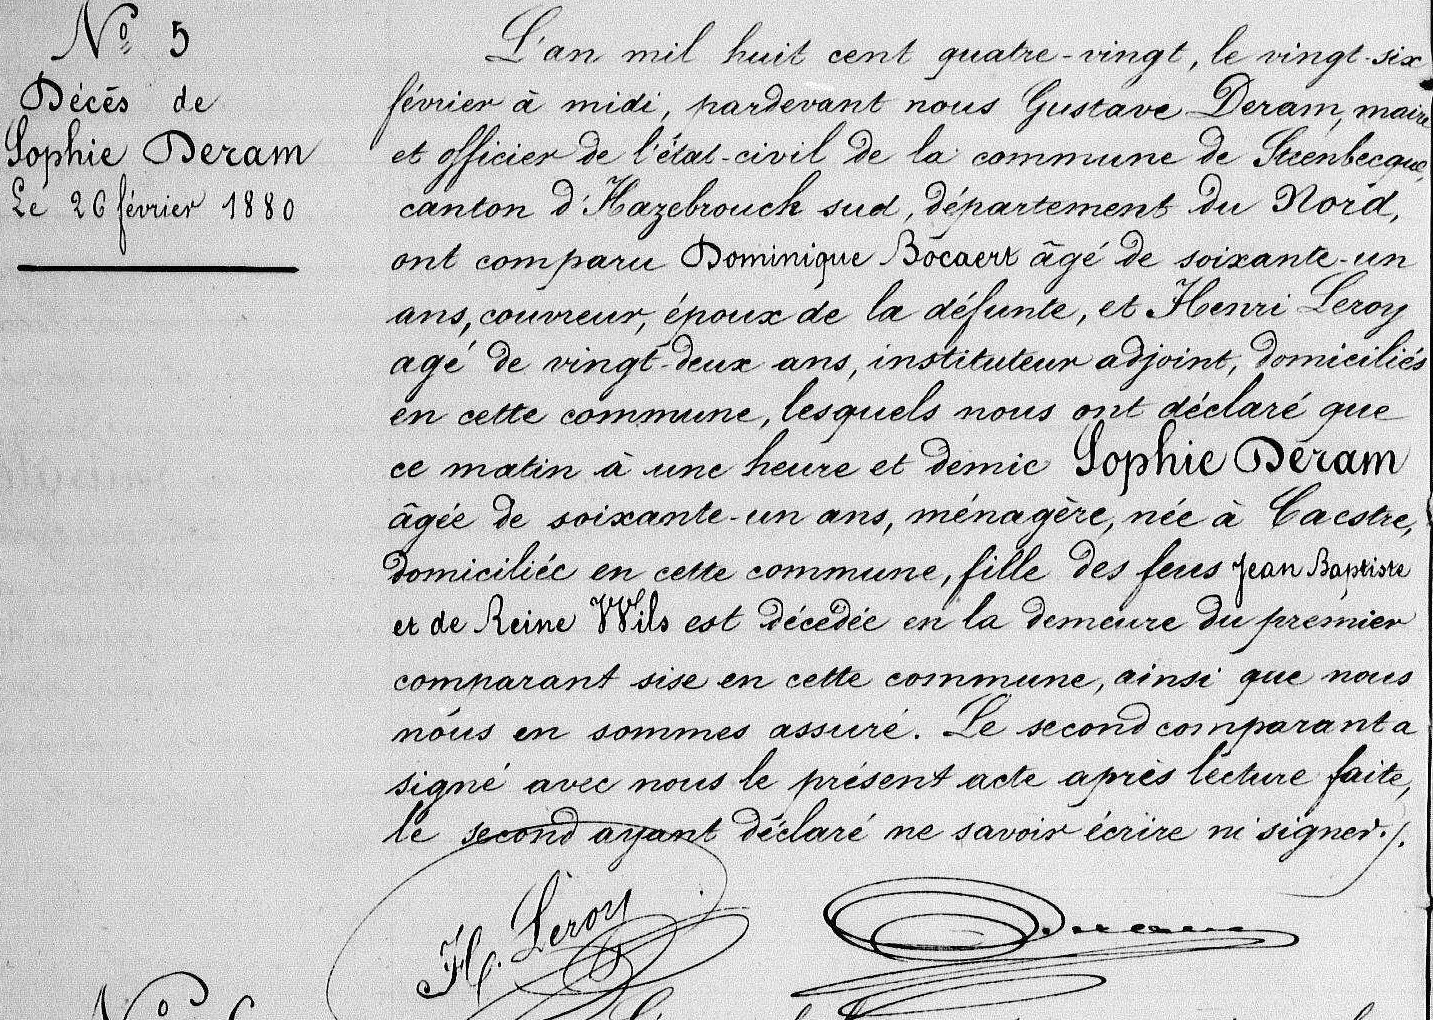 Nº 5
Décès de
Sophie Deram
Le 26 février 1880
L'an mil huit cent quatre-vingt, le vingt-six
février à midi, pardevant nous Gustave Deram, maire
et officier de l'état-civil de la commune de Steenbecque,
canton d'Hazebrouck sud, département du Nord,
ont comparu Dominique Bocaert âgé de soixante-un
ans, couvreur, époux de la défunte, et Henri Leroy
agé de vingt-deux ans, instituteur adjoint, domiciliés
en cette commune, lesquels nous ont déclaré que
ce matin à une heure et demie Sophie Deram
âgée de soixante-un ans, ménagère, née à Caestre,
domiciliée en cette commune, fille des feus Jean Baptiste
et de Reine Wils est décédée en la demeure du premier
comparant sise en cette commune, ainsi que nous
nous en sommes assuré. Le second comparant a
signé avec nous le présent acte après lecture faite,
le second ayant déclaré ne savoir écrire ni signer./.
H. Leroy
Deram
Nº 6